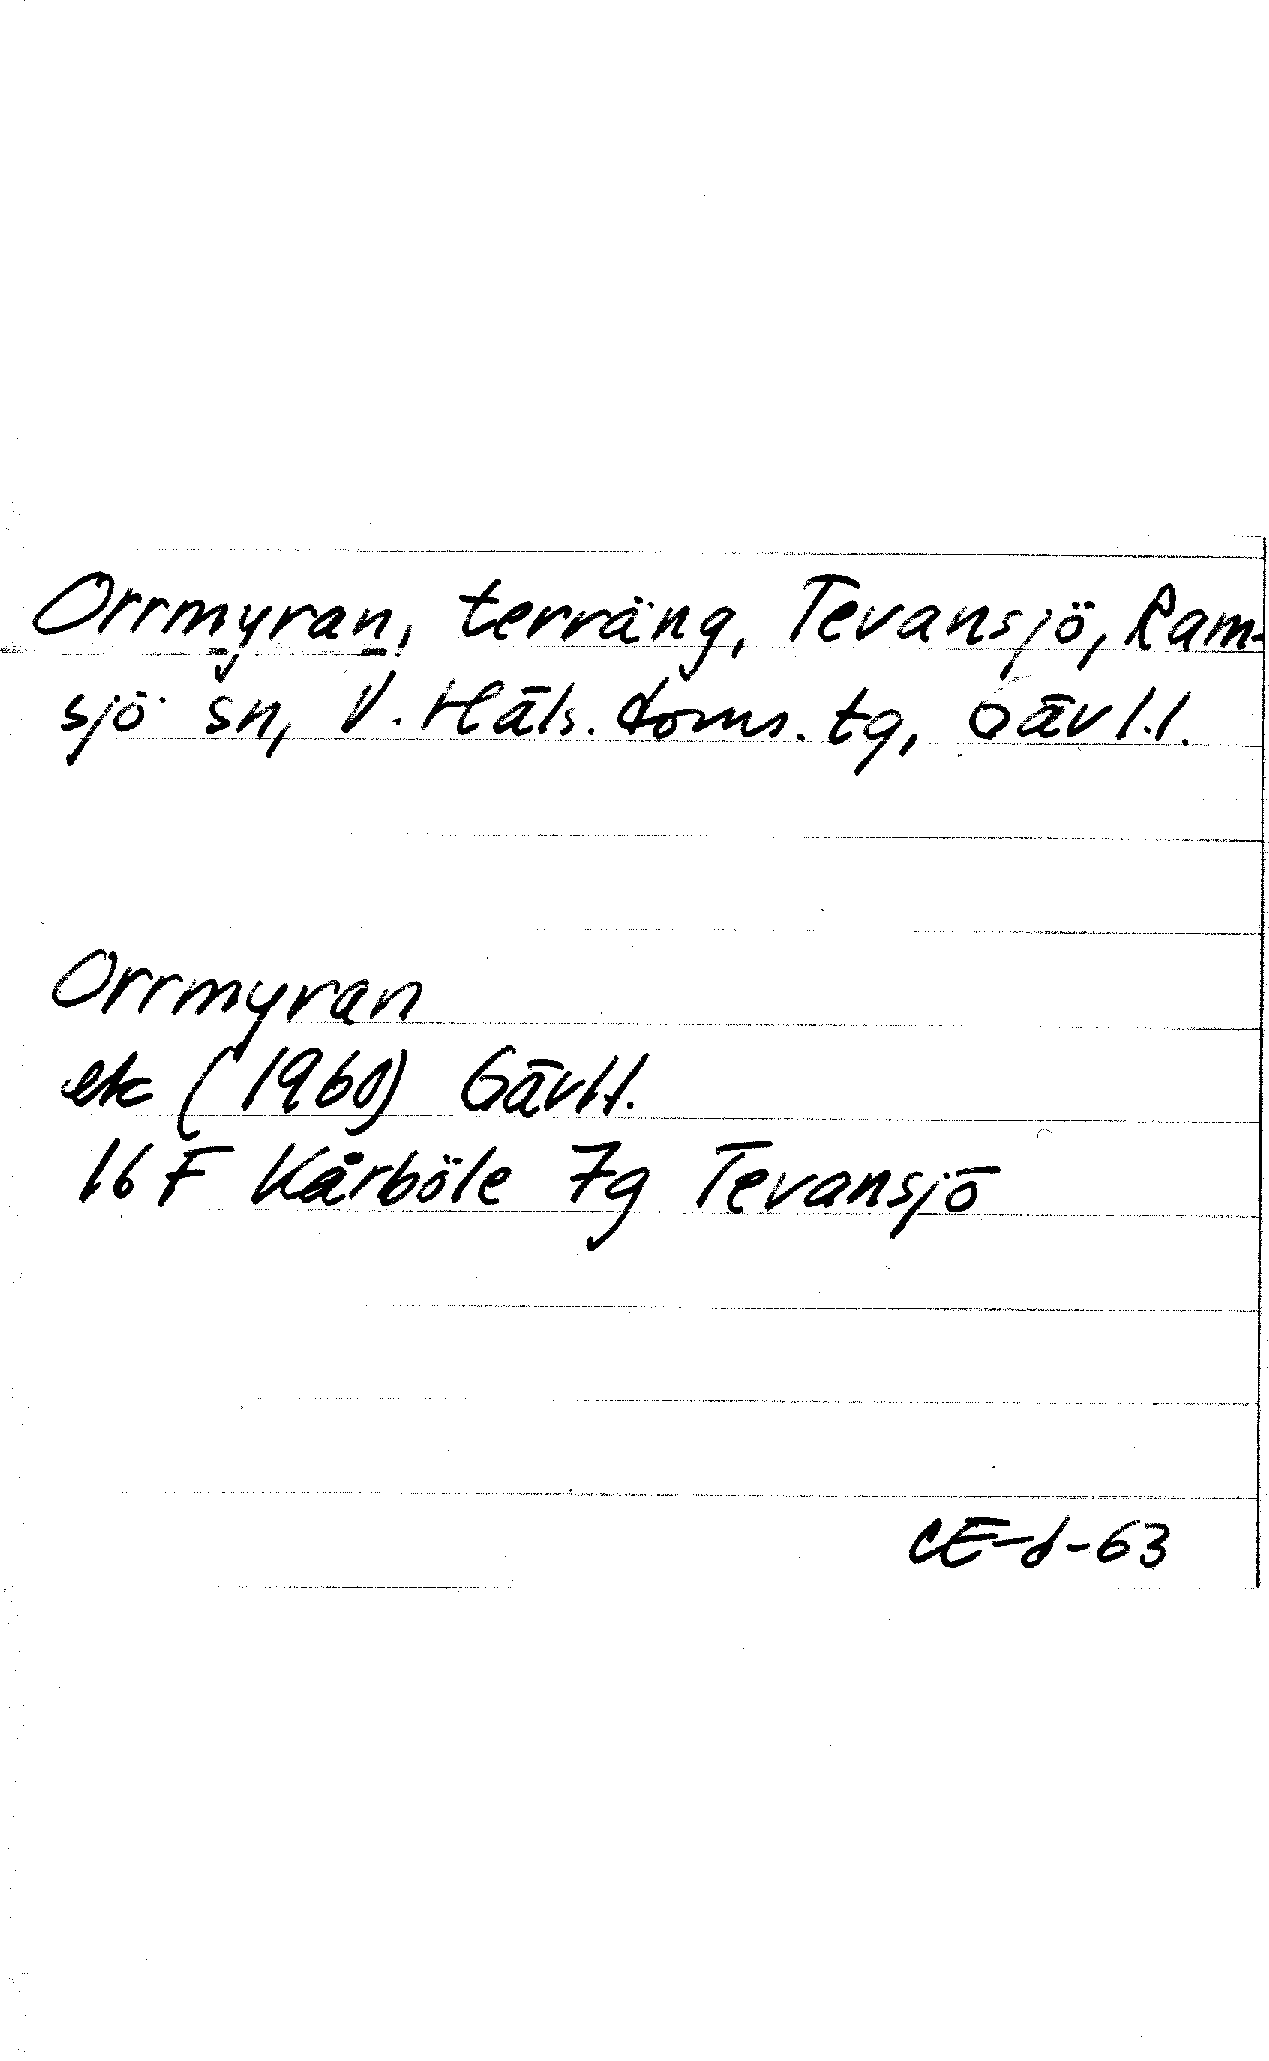 Orrmyran, terräng, Tevansjö, Ram-
sjö sn, V. Häls. doms. tg, Gävl.l.
Orrmyran
ek (1960) Gävl.l.
16 F Kårböle 7g Tevansjö
CE-d-63